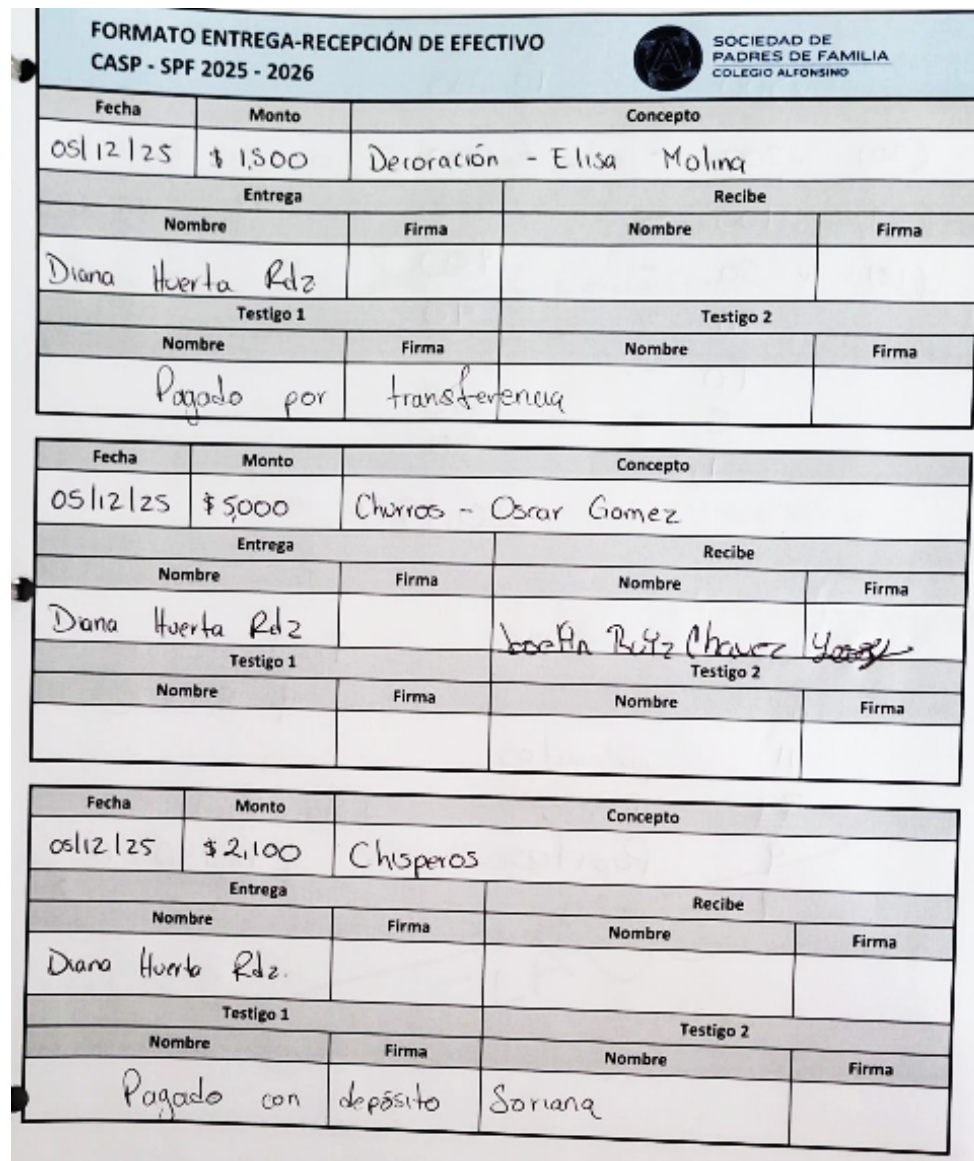 FORMATO ENTREGA-RECEPCIÓN DE EFECTIVO
CASP - SPF 2025 - 2026
SOCIEDAD DE
PADRES DE FAMILIA
COLEGIO ALFONSINO
Fecha Monto Concepto
05/12/25 $ 1,500 Decoración - Elisa Molina
Entrega Recibe
Nombre Firma Nombre Firma
Diana Huerta Rdz
Testigo 1 Testigo 2
Nombre Firma Nombre Firma
Pagado por transferencia
Fecha Monto Concepto
05/12/25 $ 5,000 Churros - Oscar Gomez
Entrega Recibe
Nombre Firma Nombre Firma
Diana Huerta Rdz Chavez
Testigo 1 Testigo 2
Nombre Firma Nombre Firma
Fecha Monto Concepto
05/12/25 $ 2,100 Chisperos
Entrega Recibe
Nombre Firma Nombre Firma
Diana Huerta Rdz.
Testigo 1 Testigo 2
Nombre Firma Nombre Firma
Pagado con depósito Soriana